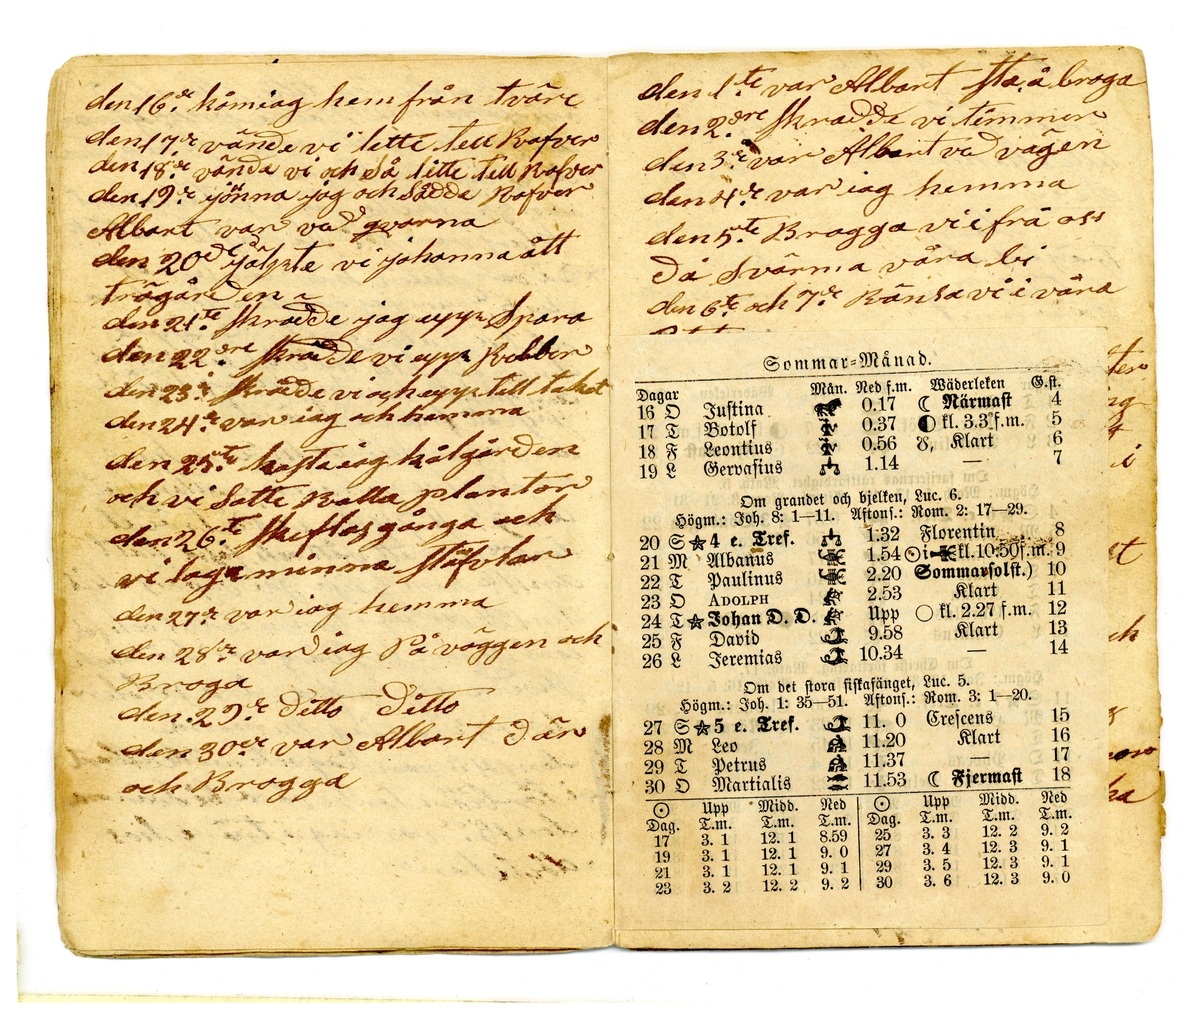 den 16de kåm iag hem från tväre
den 17de vände vi litte till Rofver
den 18de vända vi och så litte till Rofver
den 19de jönna jag och Sådde Rofver
Albart var vid qvarna
den 20de jälpte vi johanna ått
trägården
den 21te skrädde jag epp Spara
den 22dre skrädde vi epp Robber
den 23de skrädde vi och epp till teket
den 24de var iag och hemma
den 25te kasta iag kålgården
och vi Sette Rotta plantor
den 26te skiftes gånga och
vi laga minna stäfvlar
den 27de var iag hemma
den 28de var iag På väggen och
Broga
den 29de ditto ditto
den 30de var Albart där
och Brogga
den 1te var Albart sta å broga
den 2dre skradde vi timmer
den 3de var Albart vid vägen
den 4de var iag hemma
den 5te Brogga vi ifrå oss
då Svärma våra bi
den 6te och 7de Ränsa vi i våra
Sommar=Månad.
Dagar Mån. Ned f.m. Wäderleken G.st.
16 O Justina 0.17 ☾ Närmast 4
17 T Botolf 0.37 kl. 3.3 f.m. 5
18 F Leontius 0.56 ☋, Klart 6
19 L Gervasius 1.14 — 7
Om grandet och bjelken, Luc. 6.
Högm.: Joh. 8: 1—11. Aftons.: Rom. 2: 17—29.
20 S ★ 4 e. Tref. 1.32 Florentin 8
21 M Albanus 1.54 ☉ i kl. 10.50 f.m. 9
22 T Paulinus 2.20 Sommarsolst.) 10
23 O ADOLPH 2.53 Klart 11
24 T ★ Johan D. D. Upp ○ kl. 2.27 f.m. 12
25 F David 9.58 Klart 13
26 L Jeremias 10.34 — 14
Om det stora fiskafänget, Luc. 5.
Högm.: Joh. 1: 35—51. Aftons.: Rom. 3: 1—20.
27 S ★ 5 e. Tref. 11. 0 Crescens 15
28 M Leo 11.20 Klart 16
29 T Petrus 11.37 — 17
30 O Martialis 11.53 ☾ Fjermast 18
☉ Upp Midd. Ned ☉ Upp Midd. Ned
Dag. T.m. T.m. T.m. Dag. T.m. T.m. T.m.
17 3. 1 12. 1 8.59 25 3. 3 12. 2 9. 2
19 3. 1 12. 1 9. 0 27 3. 4 12. 3 9. 1
21 3. 1 12. 1 9. 1 29 3. 5 12. 3 9. 1
23 3. 2 12. 2 9. 2 30 3. 6 12. 3 9. 0